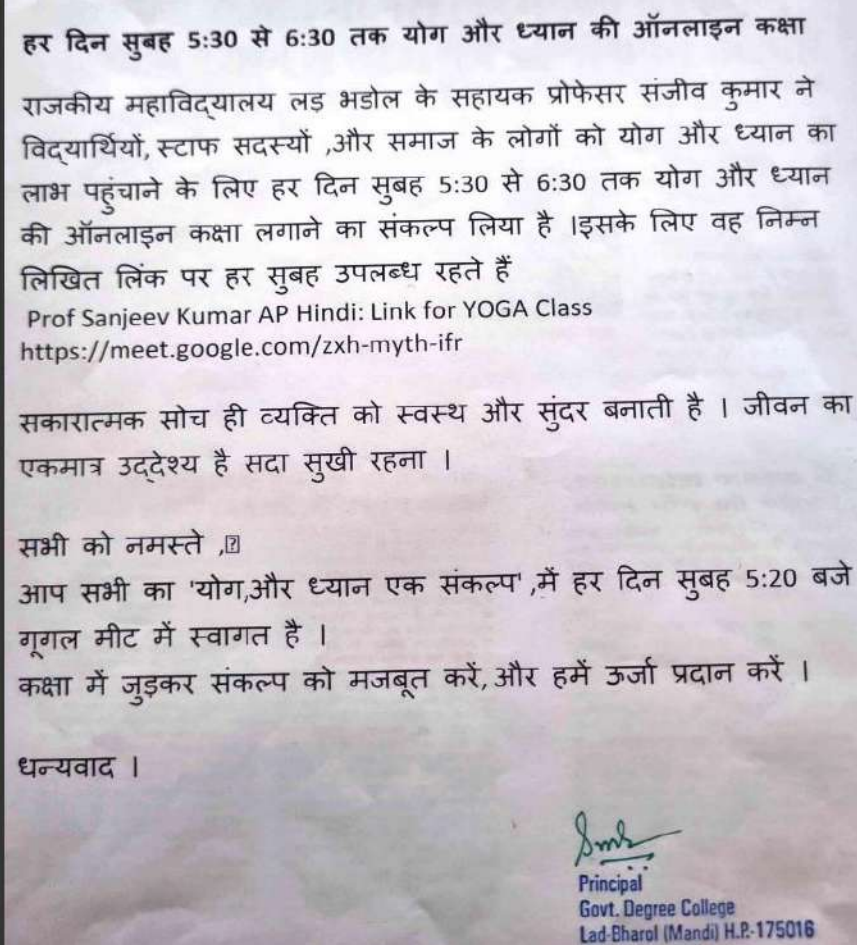 हर दिन सुबह 5:30 से 6:30 तक योग और ध्यान की ऑनलाइन कक्षा
राजकीय महाविद्यालय लड़ भडोल के सहायक प्रोफेसर संजीव कुमार ने
विद्यार्थियों, स्टाफ सदस्यों ,और समाज के लोगों को योग और ध्यान का
लाभ पहुंचाने के लिए हर दिन सुबह 5:30 से 6:30 तक योग और ध्यान
की ऑनलाइन कक्षा लगाने का संकल्प लिया है ।इसके लिए वह निम्न
लिखित लिंक पर हर सुबह उपलब्ध रहते हैं
Prof Sanjeev Kumar AP Hindi: Link for YOGA Class
https://meet.google.com/zxh-myth-ifr
सकारात्मक सोच ही व्यक्ति को स्वस्थ और सुंदर बनाती है । जीवन का
एकमात्र उद्देश्य है सदा सुखी रहना ।
सभी को नमस्ते ,
आप सभी का 'योग,और ध्यान एक संकल्प' ,में हर दिन सुबह 5:20 बजे
गूगल मीट में स्वागत है ।
कक्षा में जुड़कर संकल्प को मजबूत करें, और हमें ऊर्जा प्रदान करें ।
धन्यवाद ।
Principal
Govt. Degree College
Lad-Bharol (Mandi) H.P.-175016